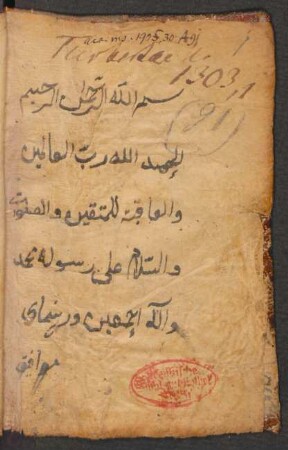 acc. ms. 1905, 30.
1303,1
(91)
بسم الله الرحمن الرحيم
الحمد لله رب العالمين
والعاقبة للمتقين والصلوة
والسلام على رسوله محمد
وآله اجمعين
موافق